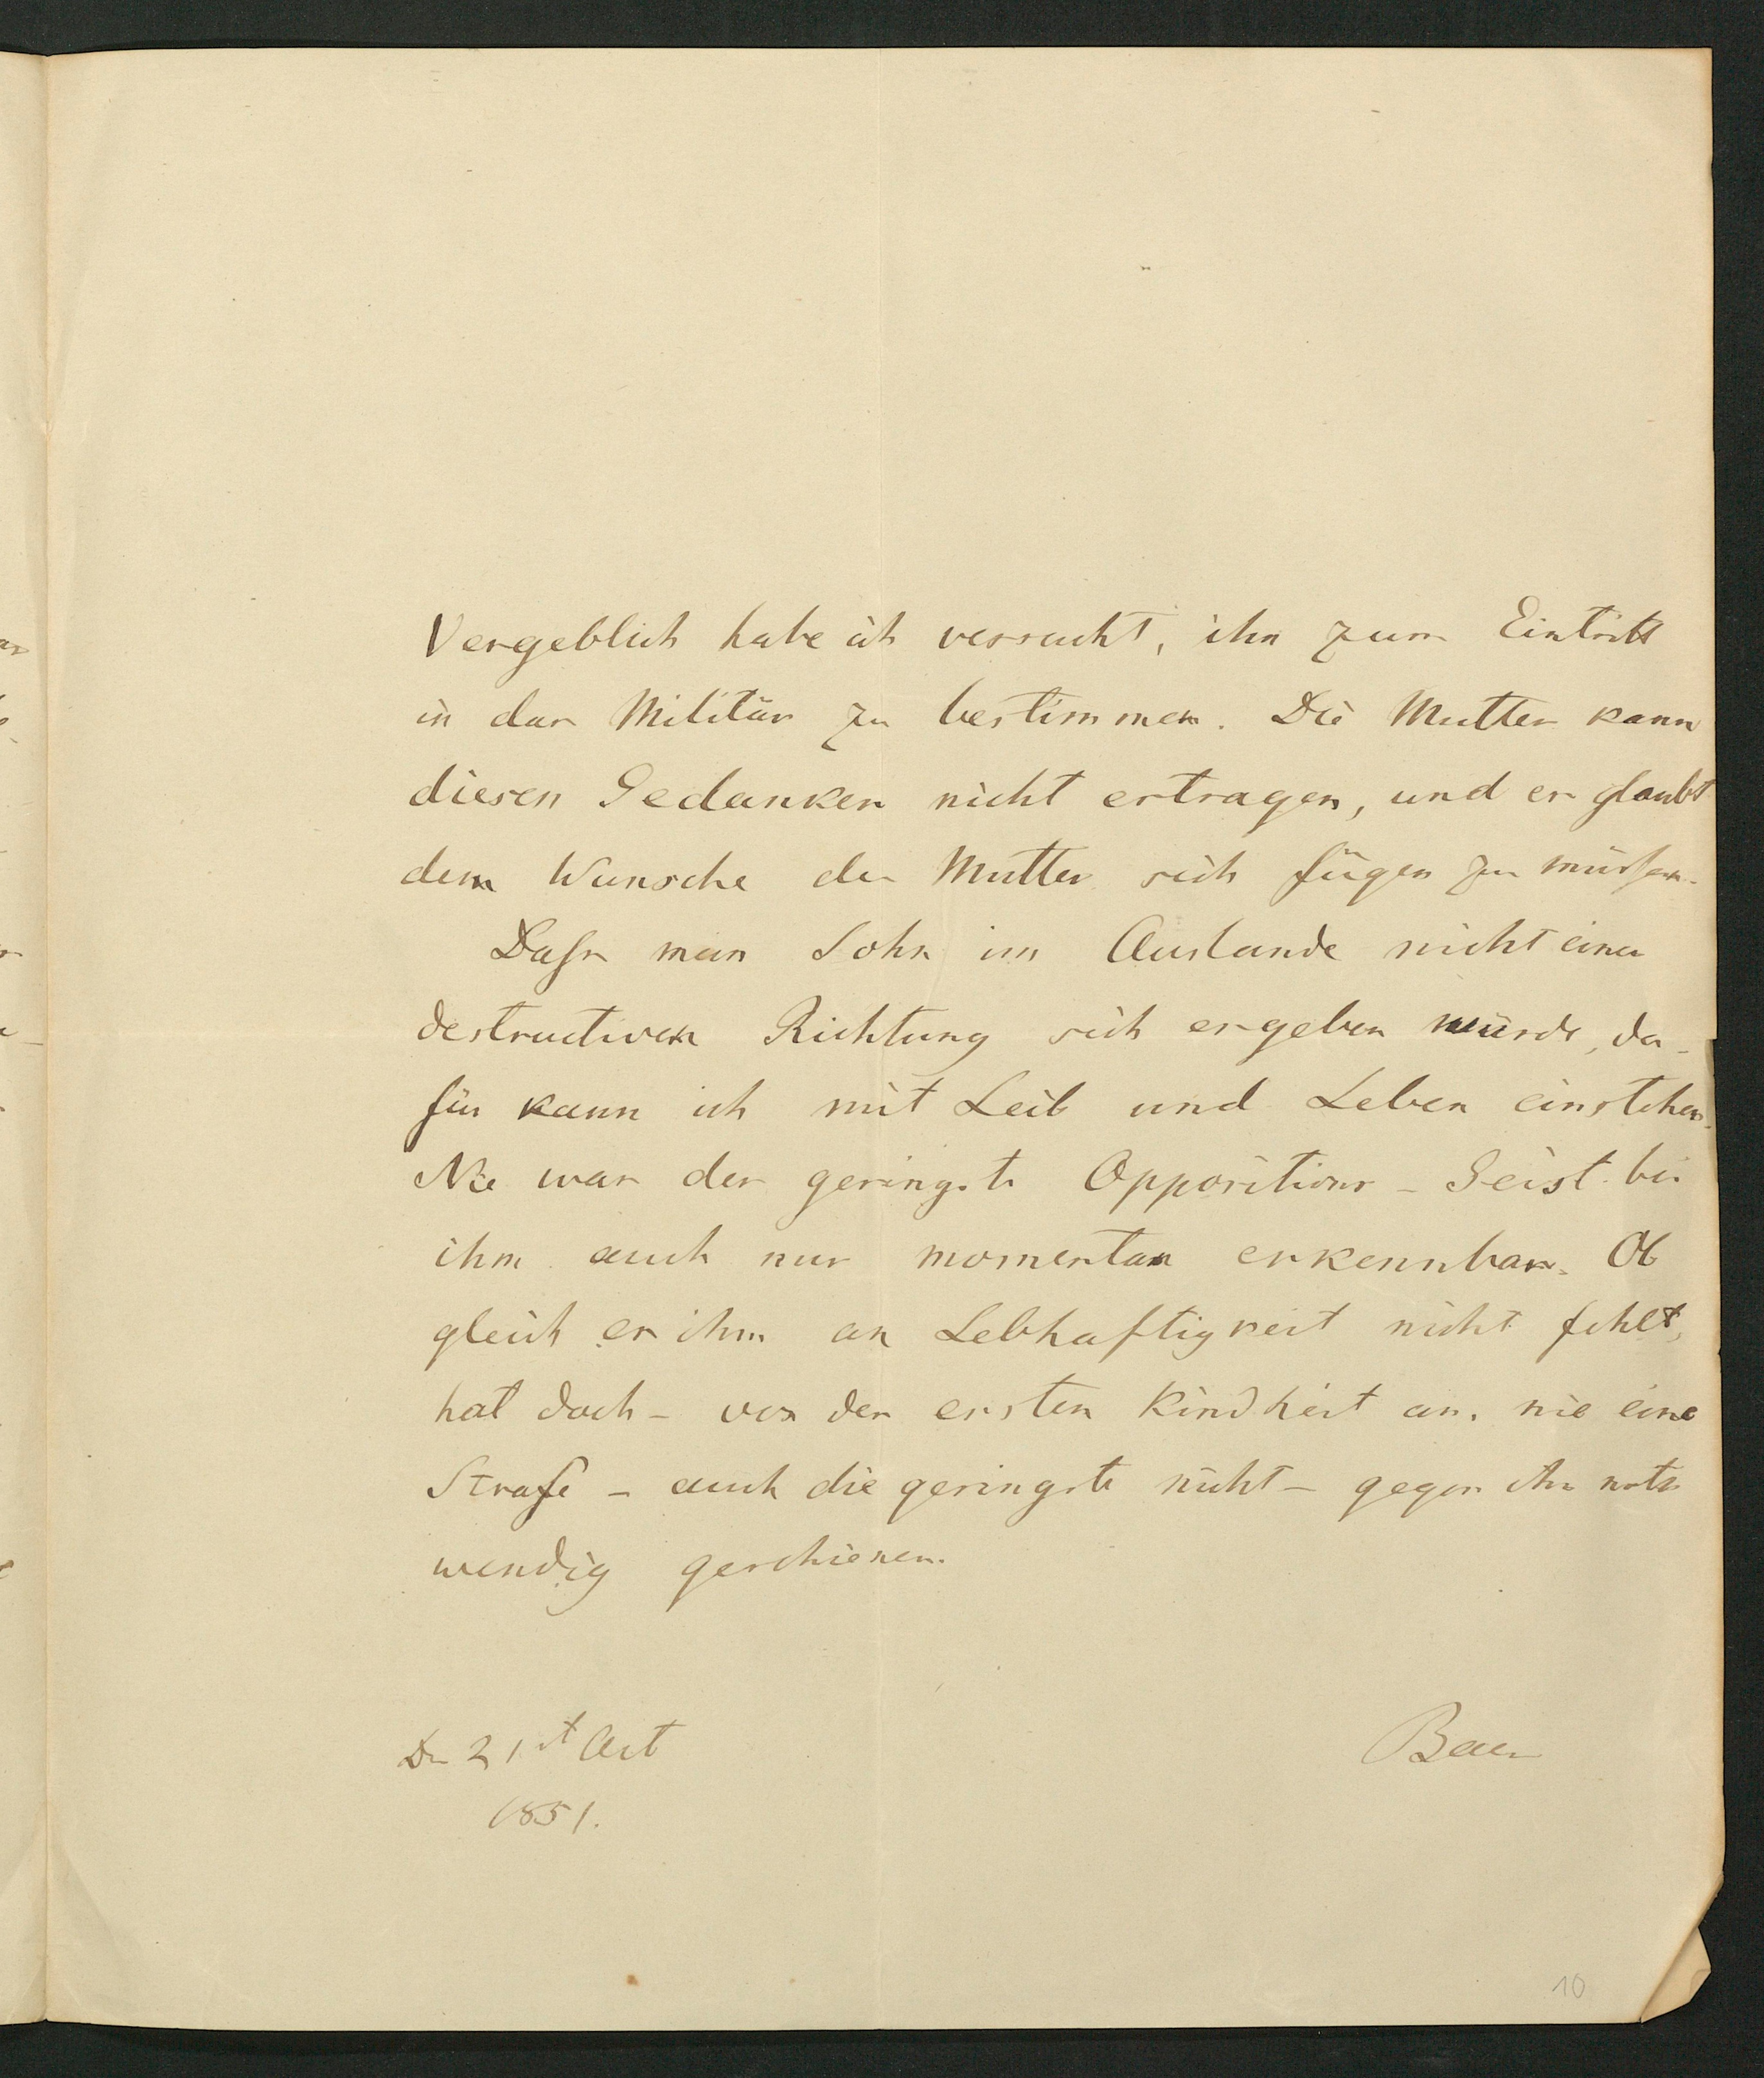 Vergeblich habe ich versucht, ihn zum Eintritt
in das Militär zu bestimmen. Die Mutter kann
diesen Gedanken nicht ertragen, und er glaubt
dem Wunsche der Mutter sich fügen zu müssen.
Dass mein Sohn im Auslande nicht einer
destructiven Richtung sich ergeben würde, da-
für kann ich mit Leib und Leben einstehen.
Nie war der geringste Oppositions-Geist bei
ihm auch nur momentan erkennbar. Ob
gleich es ihm an Lebhaftigkeit nicht fehlt,
hat doch - von der ersten Kindheit an, nie eine
Strafe - auch die geringste nicht - gegen ihn noth
wendig geschienen.
Den 21st Oct
1851.
Baer
10